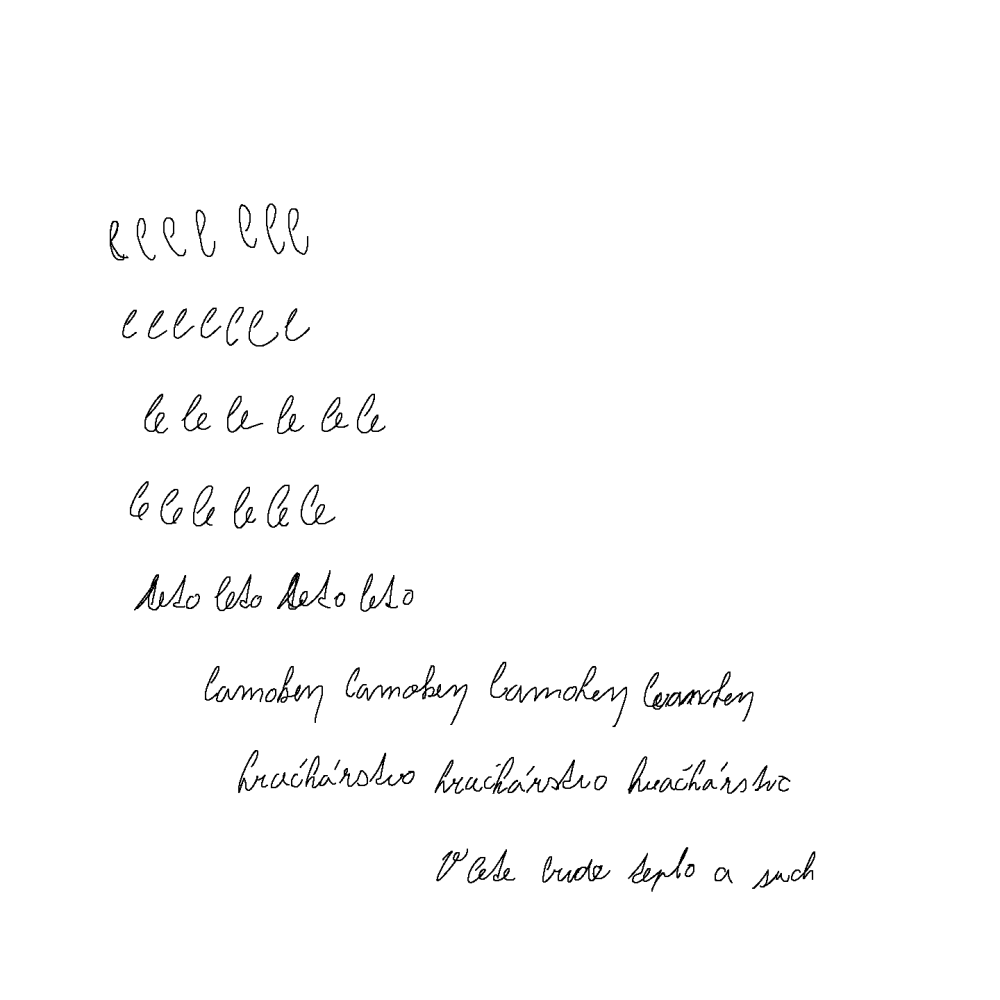 l l l l l l l
e e e e e e e
le le le le le le
le le le le le le
leto leto leto leto
lamohen lamohen lamohen lamohen
hračhárstvo hračhárstvo hračhárstvo
V lete bude teplo a such